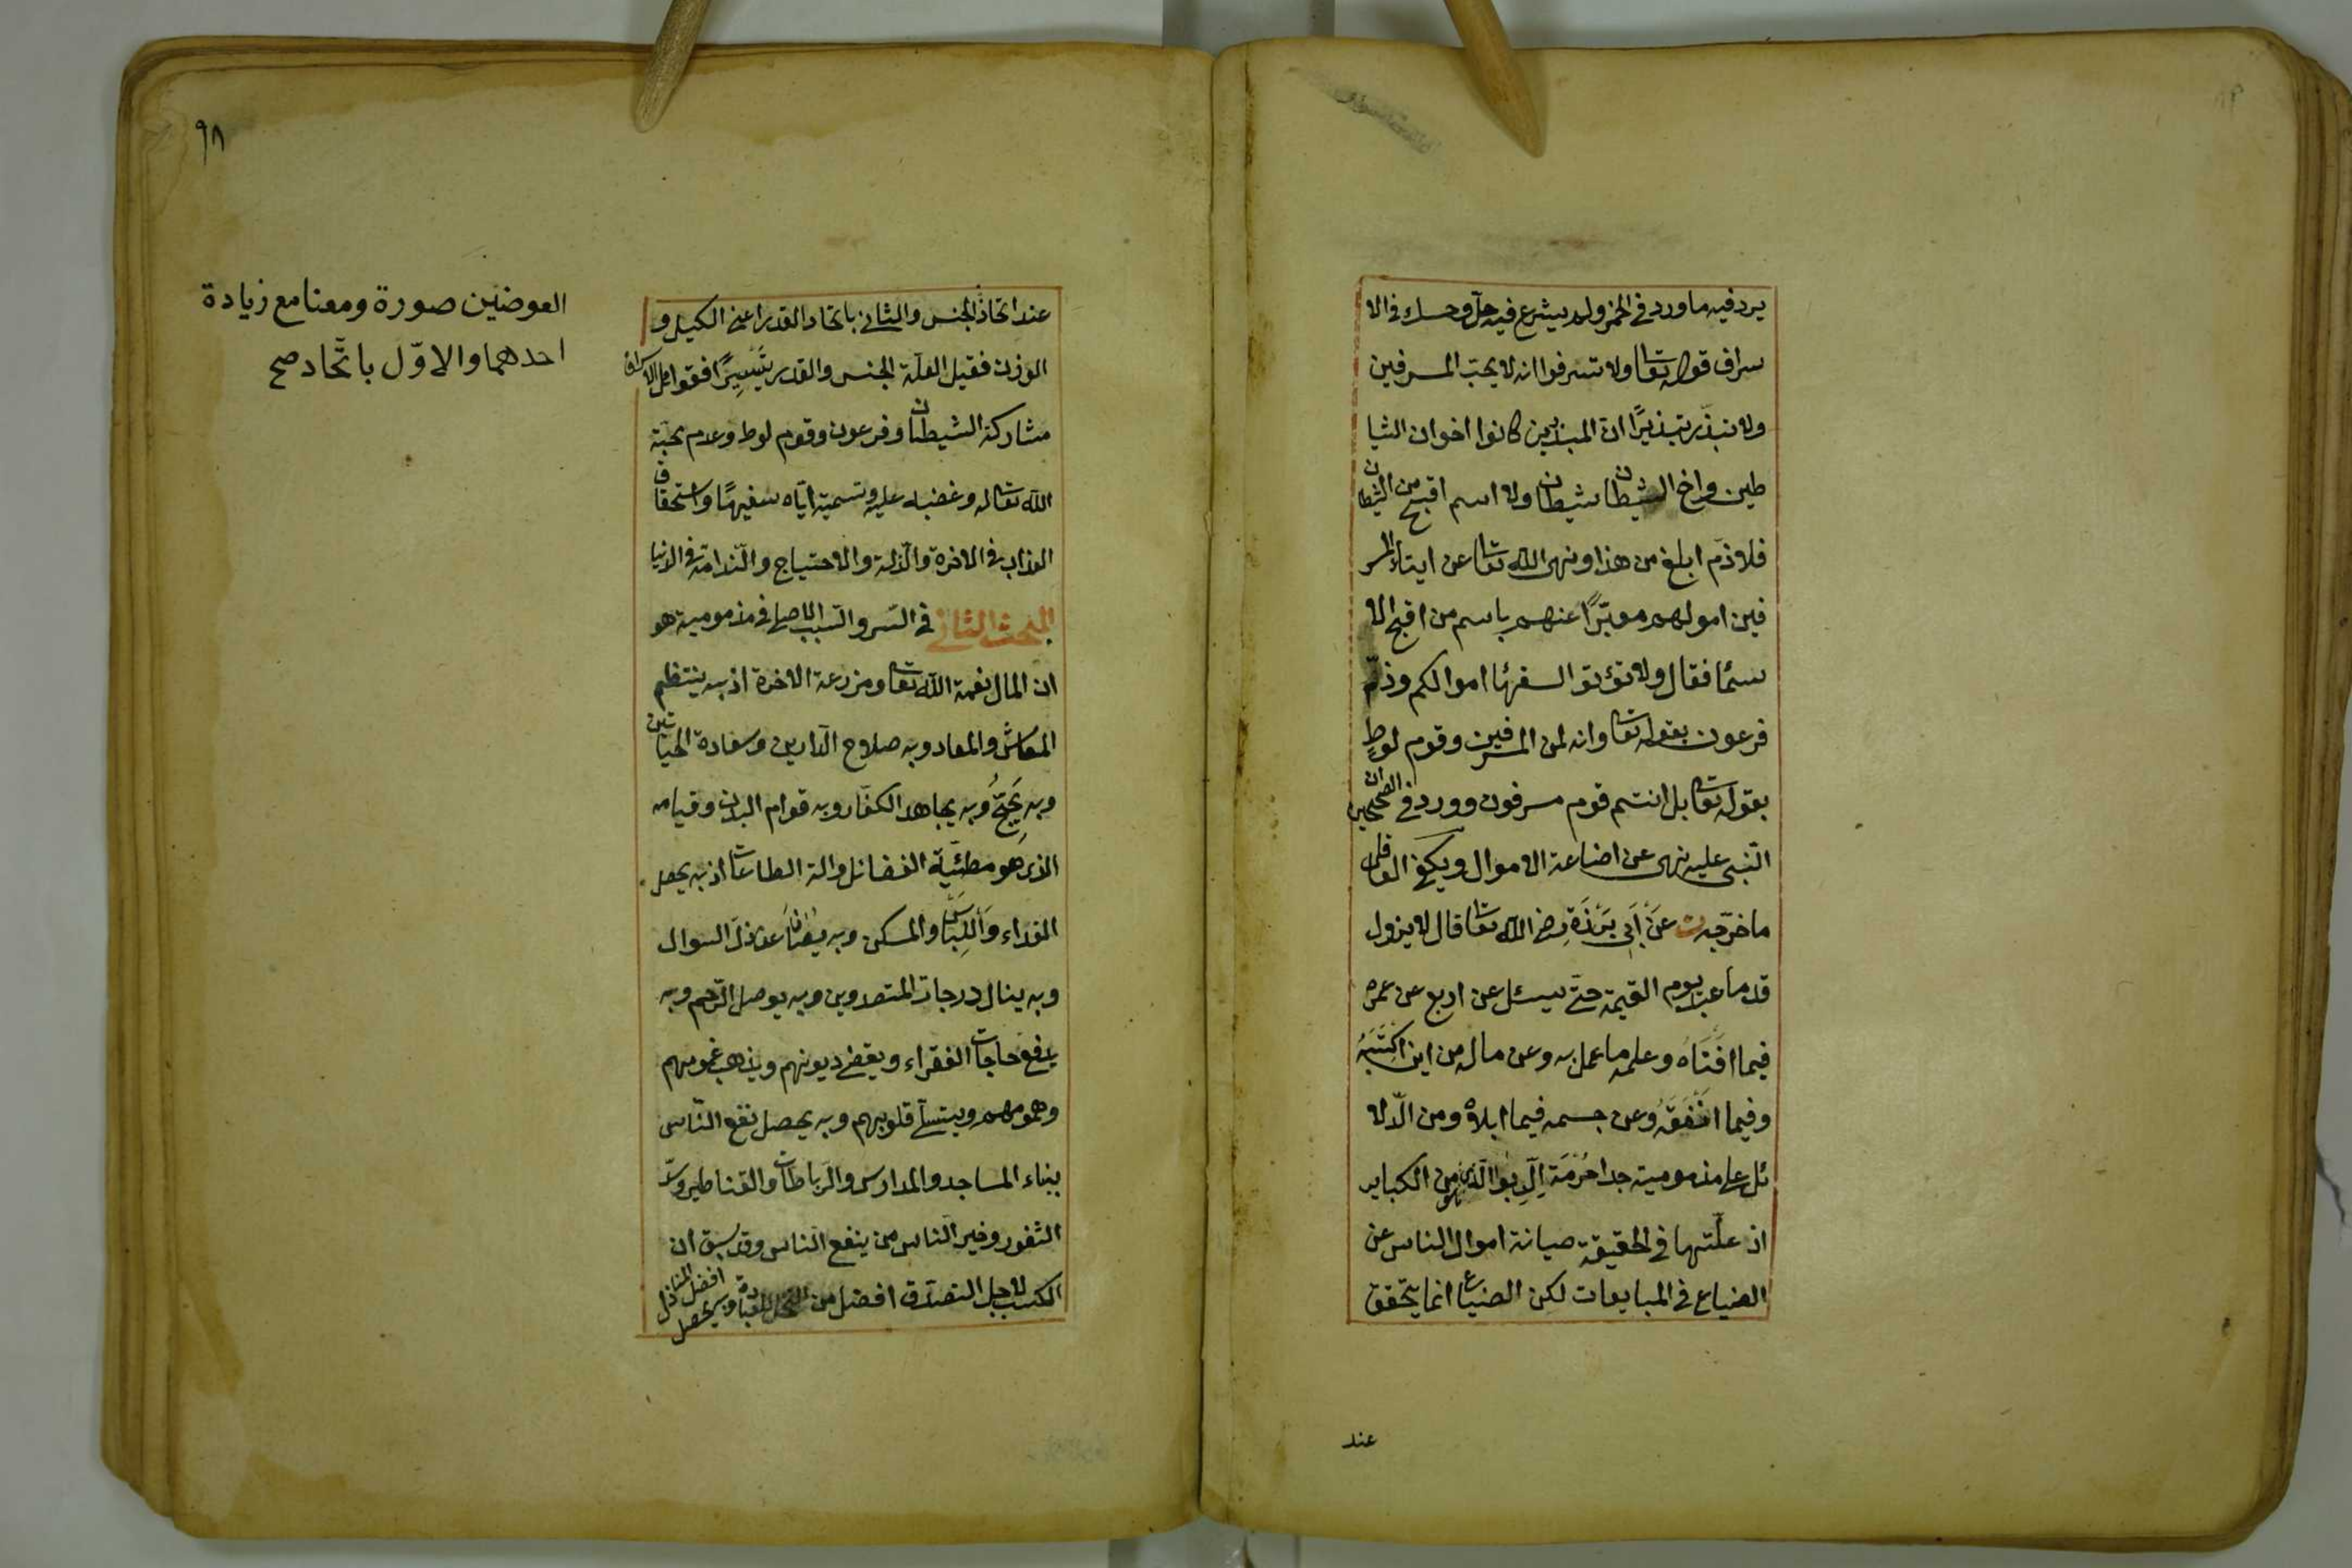 يرد فيه ما ورد في الخمر ولم يشرع فيه حدّ وحسبك في الا
سراف قوله تعا ولا تسرفوا انه لا يحبّ المسرفين
ولا تبذّر تبذيرًا ان المبذرين كانوا اخوان الشيا
طين واخ الشيطان شيطان ولا اسم اقبح من الشيطان
فلا ذمّ ابلغ من هذا ونهى الله تعا عن ايتاء المسر
فين اموالهم معبّرًا عنهم باسم من اقبح الا
سما فقال ولا تؤتوا السفهاا اموالكم وذمّ
فرعون بقوله تعا وانه لمن المسرفين وقوم لوطٍ
بقوله تعا بل انتم قوم مسرفون وورد في الصحيحين ان
النّبى عليه نهى عن اضاعة الاموال ويكفى العاقل
ما خرّجه ت عن أبي برزة رضى الله تعا قال لا يزول
قدما عبد يوم القيمة حتّى يسئل عن اربع عن عمره
فيما افناه وعلمه ما عمل به وعن ماله من اين اكتسبه
وفيما انفقه وعن جسمه فيما ابلاه ومن الدّلا
ئل على مذمومية جدا حرمة الربوا الّذى هو من الكباير
اذ علّتها في الحقيقة صيانة اموال الناس عن
الضياع في المبايعات لكن الضياع انما يتحقق
عند
٩٨
عند اتحاذ الجنس والثانى باتحاد القدر اعنى الكيل و
الوزن فقيل العلّة الجنس والقدر تيسيرًا فقوا على الاسراف
مشاركة الشيطان وفرعون وقوم لوط وعدم محبّة
الله تعاله وغضبه عليه وتسمية ايّاه سفيهًا واستحقاق
العذاب في الاخرة والذلة والاحتياج والنّدامة في الدنيا
المبحث الثانى في السّر والسّبب الاصلى في مذمومية هو
ان المال نعمة الله تعا ومزرعة الاخرة اذ به ينتظم
المعاش والمعاد وبه صلاح الدّارين وسعادة الحياتين
وبه يحجّ وبه يجاهد الكفّار وبه قوام البدن وقيامه
الذى هو مطيّة الفضائل والة الطاعات اذ به يحصل
الغذاء واللباس والمسكن وبه يصان عن ذلّ السوال
وبه ينال درجات المتصدقين وبه يوصل الرّحم وبه
يدفع حاجات الفقراء ويقضى ديونهم ويذهب غمومهم
وهمومهم ويتسلّى قلوبهم وبه يحصل نفع النّاس
ببناء المساجد والمدارس والرّباطات والقناطير وسدّ
الثغور وخير الناس من ينفع الناس وقد سبق ان
الكسب لاجل التصدّق افضل من التخلى للعبادة وبه يحصل افضل المنازل
العوضين صورة ومعنا مع زيادة
احدهما والاوّل باتّحاد صح